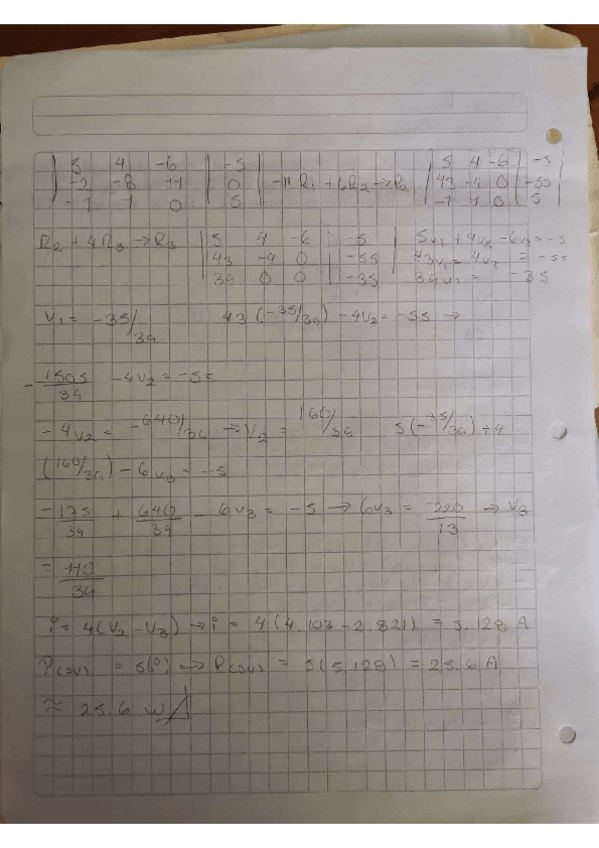 | 5 4 -6 | -5 |
| -2 -8 11 | 0 | -11 R1 + 6R2 → R2 | 5 4 -6 | -5 |
| -1 1 0 | 5 | | 43 -4 0 | -55 |
| -1 1 0 | 5 |
R2 + 4R3 → R3 | 5 4 -6 | -5 | 5v1 + 4v2 - 6v3 = -5
| 43 -4 0 | -55 | 43v1 - 4v2 = -55
| 39 0 0 | -35 | 39v1 = -35
V1 = -35/39 43 (-35/39) - 4V2 = -55 →
- 1505/39 - 4V2 = -55
-4V2 = -640/39 → V2 = 160/39 5(-35/39) + 4
(160/39) - 6V3 = -5
-175/39 + 640/39 - 6V3 = -5 → 6V3 = 220/13 → V3
= 110/39
i = 4(V2 - V3) → i = 4(4.103 - 2.821) = 5.128 A
P(5V) = 5(i) → P(5V) = 5(5.128) = 25.6 A
≈ 25.6 W